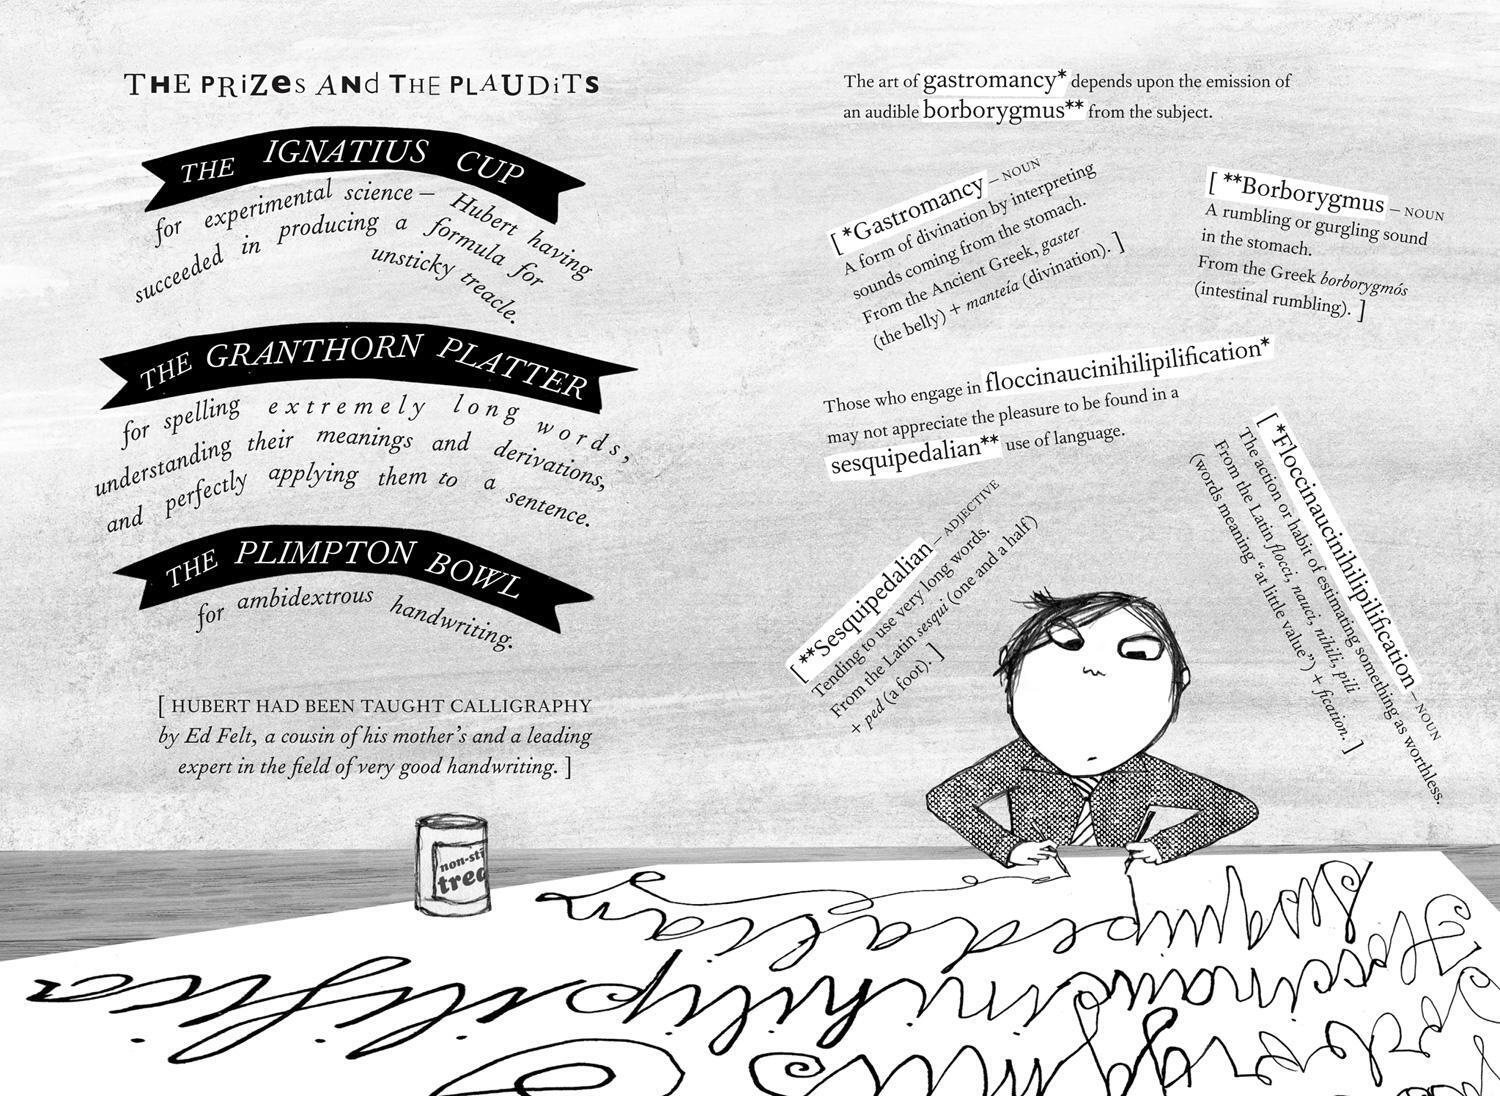 THE PRiZes ANd THE PLAUDiTS
THE IGNATIUS CUP
for experimental science – Hubert having
succeeded in producing a formula for
unsticky treacle.
THE GRANTHORN PLATTER
for spelling extremely long words,
understanding their meanings and derivations,
and perfectly applying them to a sentence.
THE PLIMPTON BOWL
for ambidextrous handwriting.
[ HUBERT HAD BEEN TAUGHT CALLIGRAPHY
by Ed Felt, a cousin of his mother's and a leading
expert in the field of very good handwriting. ]
non-sti
trea
The art of gastromancy* depends upon the emission of
an audible borborygmus** from the subject.
[ *Gastromancy – NOUN
A form of divination by interpreting
sounds coming from the stomach.
From the Ancient Greek, gaster
(the belly) + manteía (divination). ]
[ **Borborygmus – NOUN
A rumbling or gurgling sound
in the stomach.
From the Greek borborygmós
(intestinal rumbling). ]
Those who engage in floccinaucinihilipilification*
may not appreciate the pleasure to be found in a
sesquipedalian** use of language.
[ **Sesquipedalian – ADJECTIVE
Tending to use very long words.
From the Latin sesqui (one and a half)
+ ped (a foot). ]
[ *Floccinaucinihilipilification – NOUN
The action or habit of estimating something as worthless.
From the Latin flocci, nauci, nihili, pili
(words meaning "at little value") + fication. ]
Sesquipedalian